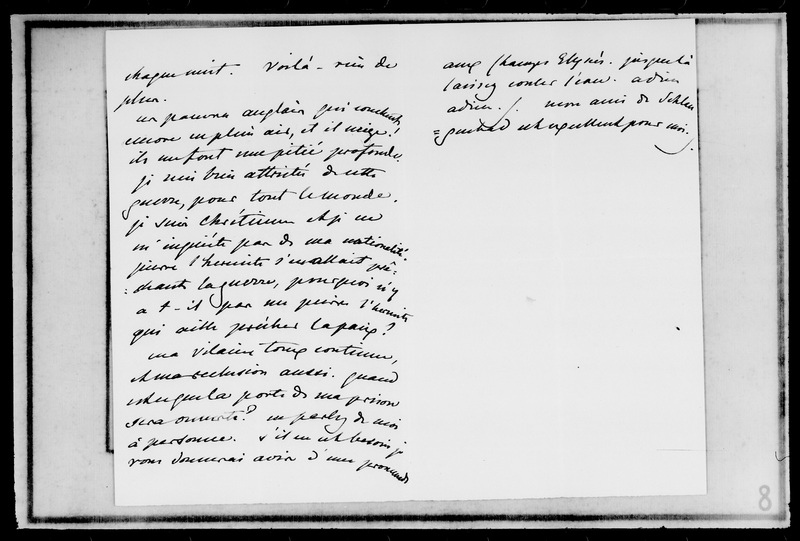 chaque nuit. Voilà – rien de
plus.
ces pauvres anglais qui couchent
encore en plein air, et il neige!
ils me font une pitié profonde.
je suis bien attristée de cette
guerre, pour tout le monde.
je suis chrétienne et je ne
m'inquiète pas de ma nationalité.
pierre l'hermite s'en allait prê=
=chant la guerre, pourquoi n'y
a t-il pas un pierre l'hermite
qui aille prêcher la paix?
ma vilaine toux continue,
et ma reclusion aussi. quand
est ce que la porte de ma prison
sera ouverte? ne parlez de moi
à personne. s'il en est besoin je
vous donnerai avis d'une promenade
aux Champs Elysés. jusque là
laissez couler l'eau. adieu
adieu. mon amie de
est excellent pour moi.
8